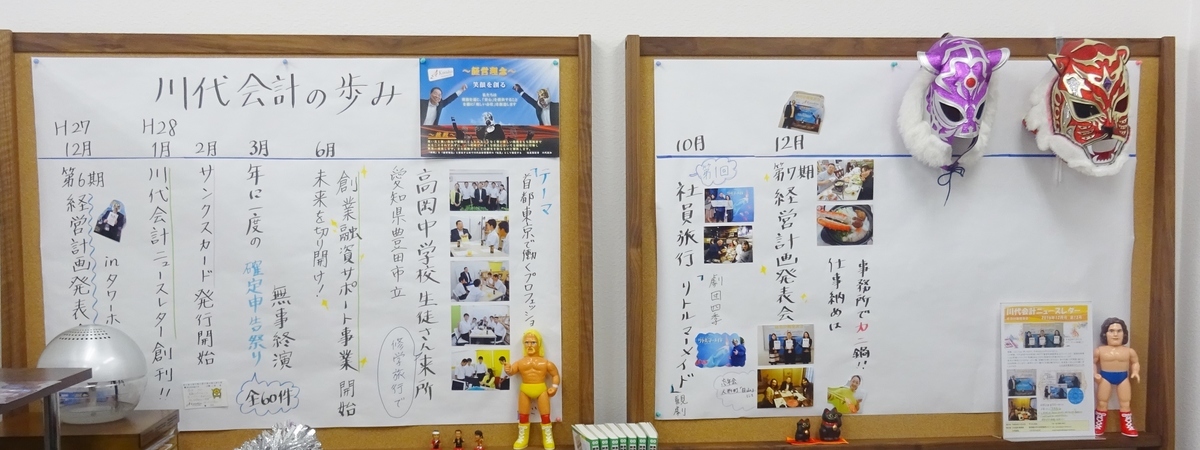 川代会計の歩み
H27
12月
第6期
経営計画発表
in タワーホ
H28
1月
川代会計ニュースレター 創刊!!
2月
サンクスカード発行開始
3月
年に一度の 確定申告祭り
無事終演
全60件
6月
創業融資サポート事業 開始
未来を切り開け!
愛知県豊田市立
高岡中学校 生徒さん来所
修学旅行で
テーマ
首都東京で働くプロフェッショ
〜経営理念〜
笑顔を創る
10月
第1回
社員旅行
劇団四季
「リトルマーメイド」観劇
12月
第7期
経営計画発表会
仕事納めは
事務所でカニ鍋!!
川代会計ニュースレター